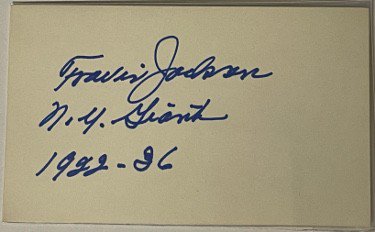 Travis Jackson
N.Y. Giants
1922-36